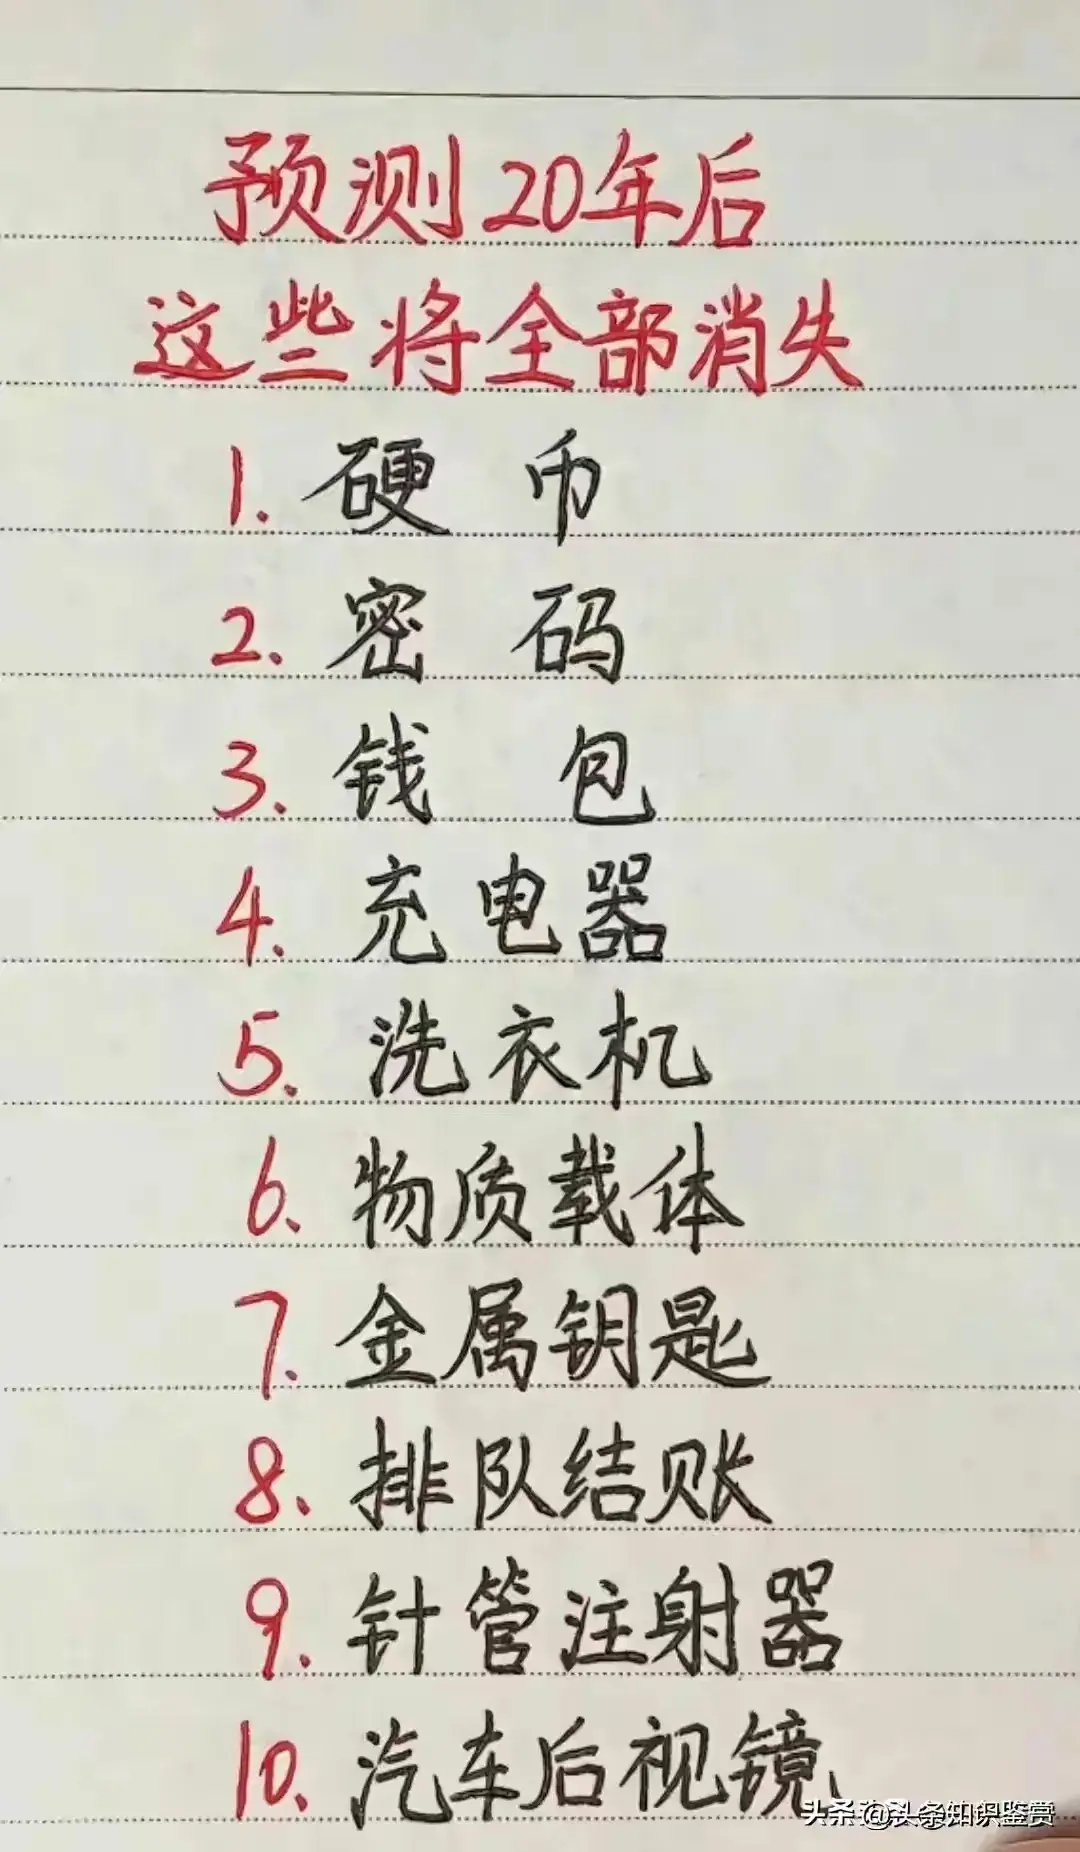 预测20年后
这些将全部消失
1. 硬币
2. 密码
3. 钱包
4. 充电器
5. 洗衣机
6. 物质载体
7. 金属钥匙
8. 排队结账
9. 针管注射器
10. 汽车后视镜
头条 @头条知识鉴赏